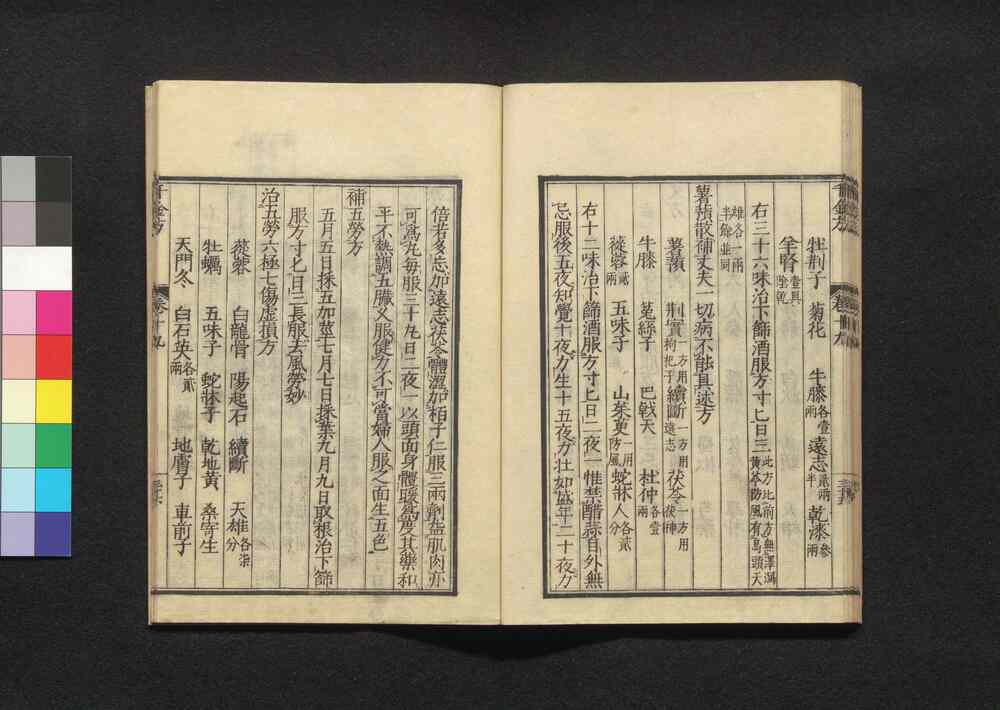 千金方 卷十九
牡荆子 菊花 牛膝各壹兩 遠志貳兩半 乾漆參兩
羊腎壹具陰乾
右三十六味治下篩酒服方寸匕日三此方比前方無澤瀉黄芩防風有烏頭天
雄各一兩半餘並同
薯蕷散補丈夫一切病不能具述方
薯蕷 荆實一方用枸杞子 續斷一方用遠志 茯苓一方用茯神
牛膝 菟絲子 巴戟天 杜仲各壹兩
蓯蓉貳兩 五味子 山茱萸一用防風 蛇牀人各貳分
右十二味治下篩酒服方寸匕日二夜一惟禁醋蒜自外無
忌服後五夜知覺十夜力生十五夜力壯如盛年二十夜力
倍若多忘加遠志茯苓體澀加栢子仁服三兩劑益肌肉亦
可爲丸每服三十丸日二夜一以頭面身體暖爲度其藥和
平不熱調五臟久服健力不可當婦人服之面生五色
補五勞方
五月五日採五加莖七月七日採葉九月九日取根治下篩
服方寸匕日三長服去風勞妙
治五勞六極七傷虚損方
蓯蓉 白龍骨 陽起石 續斷 天雄各柒分
牡蠣 五味子 蛇牀子 乾地黄 桑寄生
天門冬 白石英各貳兩 地膚子 車前子
千金方 卷十九